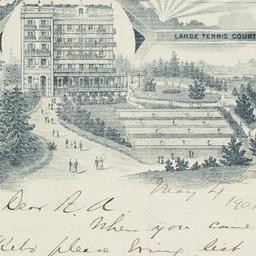 LARGE TENNIS COURT
May 4th 190
Dear A. A.
When you come
Kebo please bring list